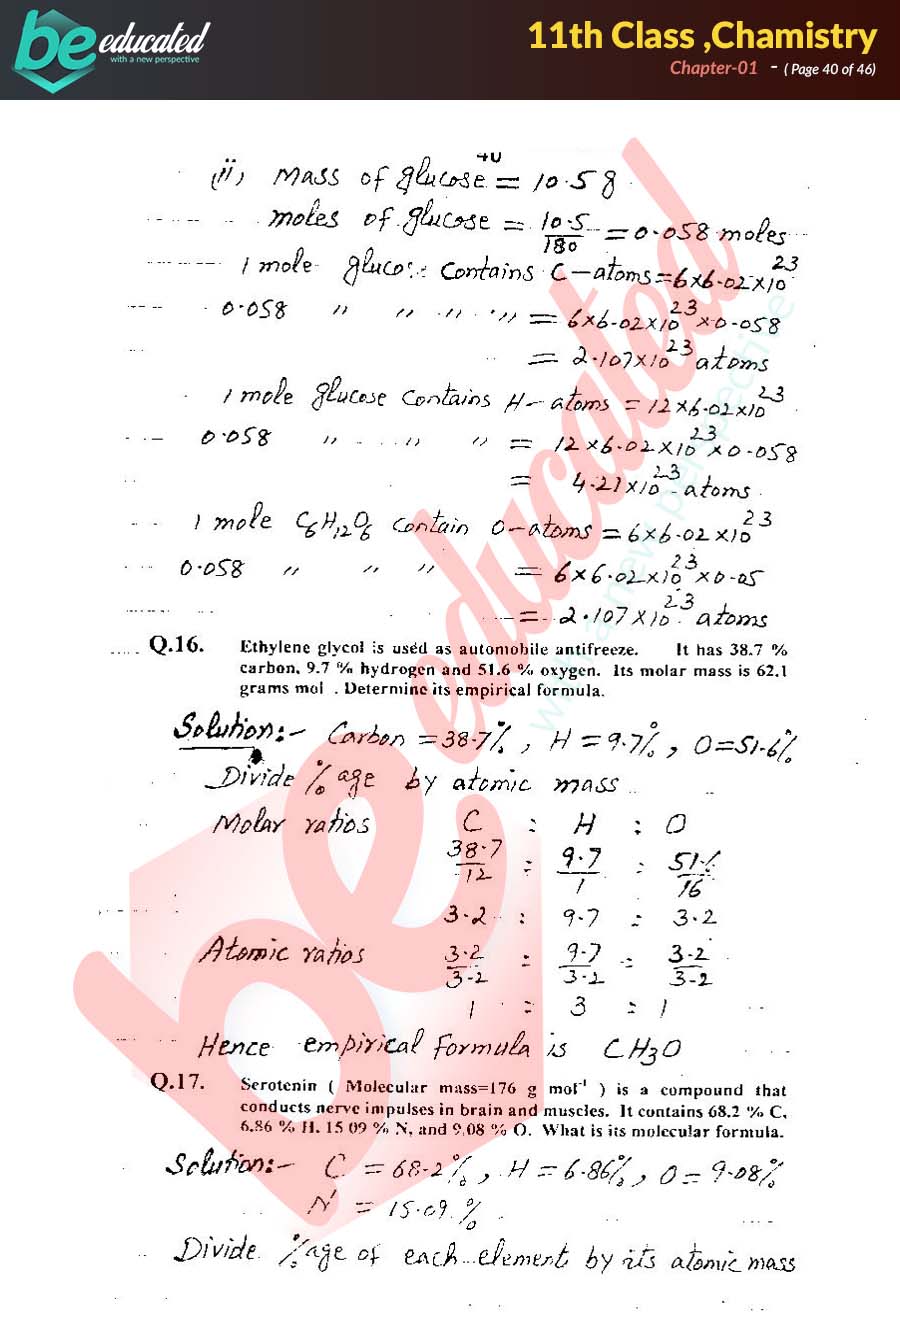 be educated
with a new perspective
11th Class ,Chamistry
Chapter-01 - ( Page 40 of 46)
40
(ii) Mass of glucose = 10.5 g
moles of glucose = 10.5/180 = 0.058 moles
1 mole glucose contains C-atoms = 6x6.02x10^23
0.058 " " " " = 6x6.02x10^23 x0.058
= 2.107x10^23 atoms
1 mole glucose contains H-atoms = 12x6.02x10^23
0.058 " " " = 12x6.02x10^23 x0.058
= 4.21x10^23 atoms
1 mole C6H12O6 contain O-atoms = 6x6.02x10^23
0.058 " " " = 6x6.02x10^23 x0.05
= 2.107x10^23 atoms
Q.16. Ethylene glycol is used as automobile antifreeze. It has 38.7 %
carbon, 9.7 % hydrogen and 51.6 % oxygen. Its molar mass is 62.1
grams mol . Determine its empirical formula.
Solution:- Carbon = 38.7%, H = 9.7%, O=51.6%
Divide %age by atomic mass
Molar ratios C : H : O
38.7/12 : 9.7/1 : 51.6/16
3.2 : 9.7 : 3.2
Atomic ratios 3.2/3.2 : 9.7/3.2 : 3.2/3.2
1 : 3 : 1
Hence empirical formula is CH3O
Q.17. Serotenin ( Molecular mass=176 g mol⁻¹ ) is a compound that
conducts nerve impulses in brain and muscles. It contains 68.2 % C,
6.86 % H, 15 09 % N, and 9.08 % O. What is its molecular formula.
Solution:- C = 68.2%, H = 6.86%, O = 9.08%
N = 15.09 %
Divide %age of each element by its atomic mass
be educated
with a new perspective